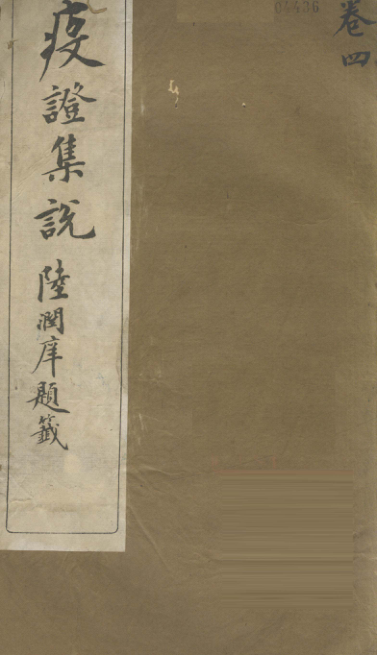 卷四
疫證集說
陸潤庠題籤